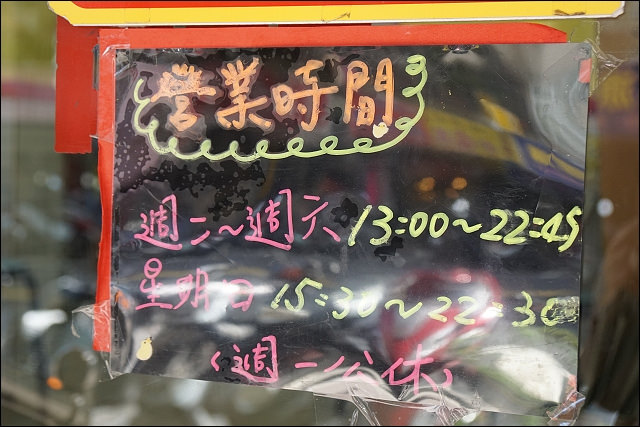 營業時間
週二~週六 13:00~22:45
星期日 15:30~22:30
(週一公休)